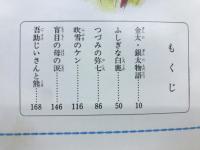 もくじ
金太・銀太物語 10
ふしぎな白鹿 50
つづみの弥七 86
吹雪のケン 116
盲目の母の涙 146
吾助じいさんと熊 168